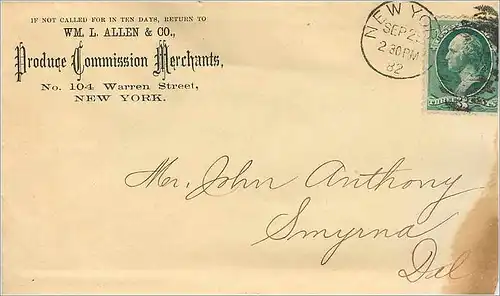 IF NOT CALLED FOR IN TEN DAYS, RETURN TO
WM. L. ALLEN & CO.,
Produce Commission Merchants,
No. 104 Warren Street,
NEW YORK.
NEW YO
SEP 2
2 30 PM
82
THREE
Mr. John Anthony
Smyrna
Del